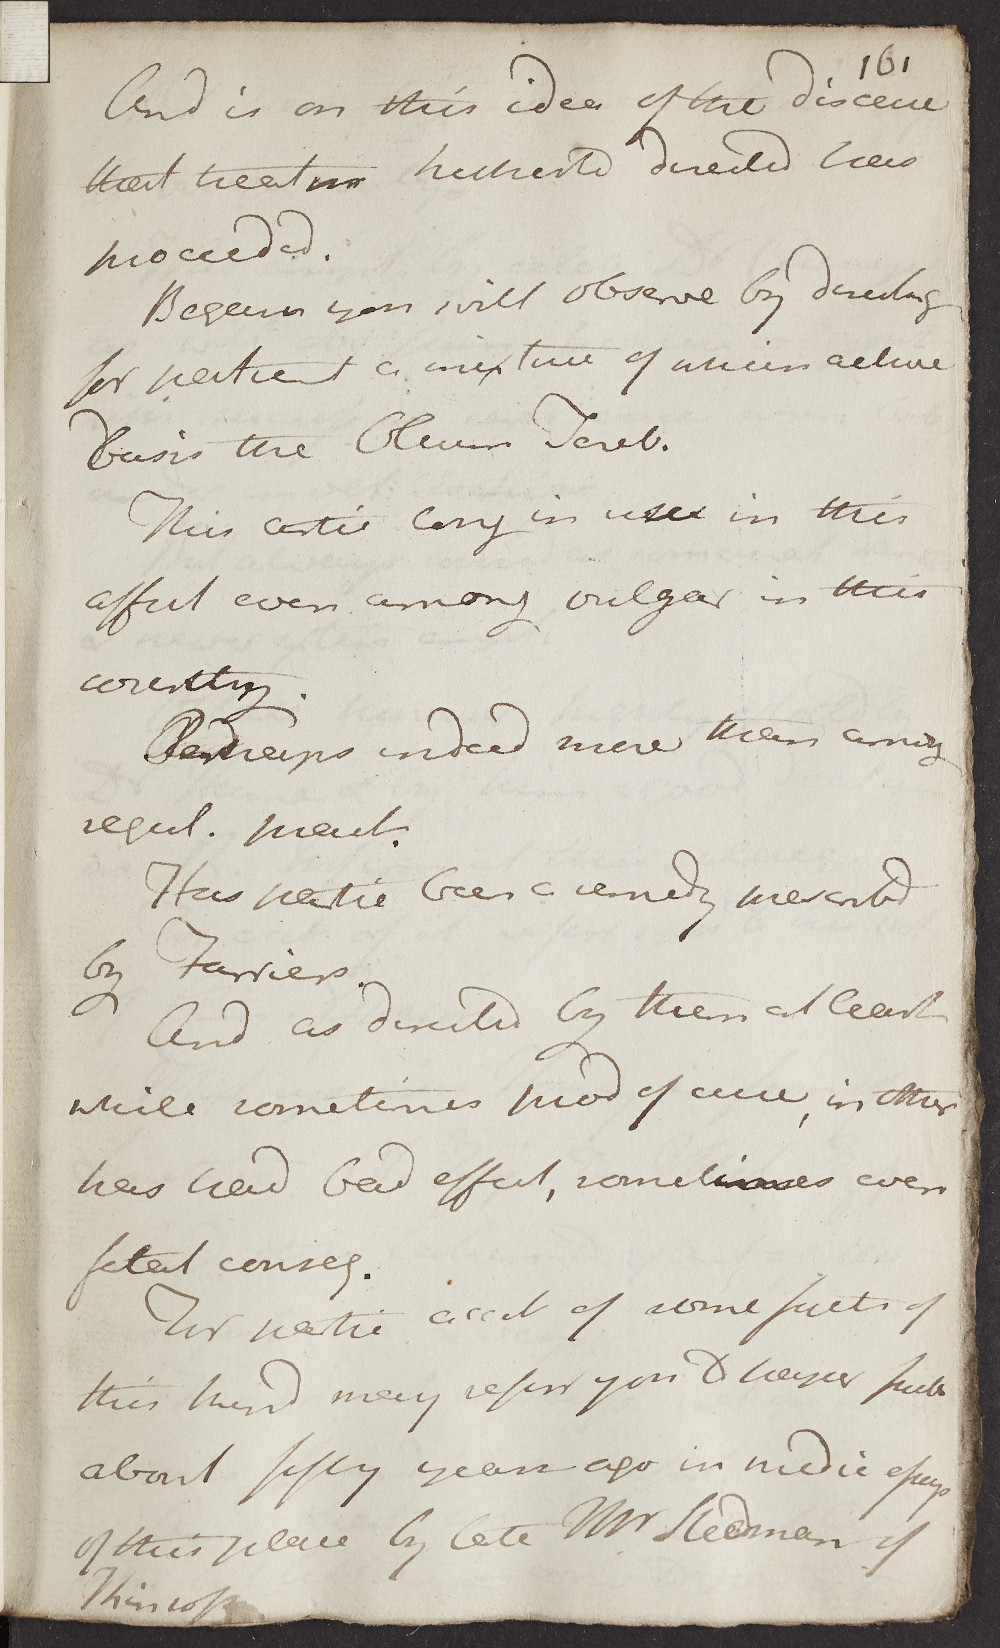 161
And is on this idea of the disease
that treatm hitherto directed has
proceeded.
Began you will observe by directing
for patient a mixture of which active
basis the Oleum Tereb.
This artic long in use in this
affect even among vulgar in this
country.
Perhaps indeed more than among
regul. pract.
Has partic been a remedy prescribd
by Farriers.
And as directed by them at least
while sometimes prod of cure, in other
has had bad effect, sometimes even
fatal conseq.
For partic acct of some facts of
this kind may refer you to paper pub
about fifty years ago in medic essays
of this place by late Mr Stedman of
Kinross